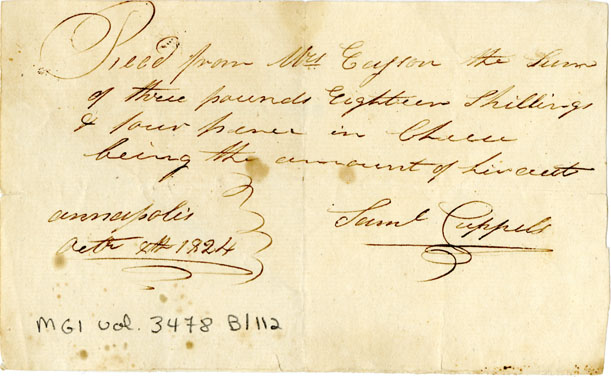 Recd from Mrs Cayson the Sum
of three pounds Eighteen Shillings
& four pence in Cheese
being the amount of her acct
annapolis
Octr 8th 1824
Saml Cappels
MG1 vol. 3478 B/112